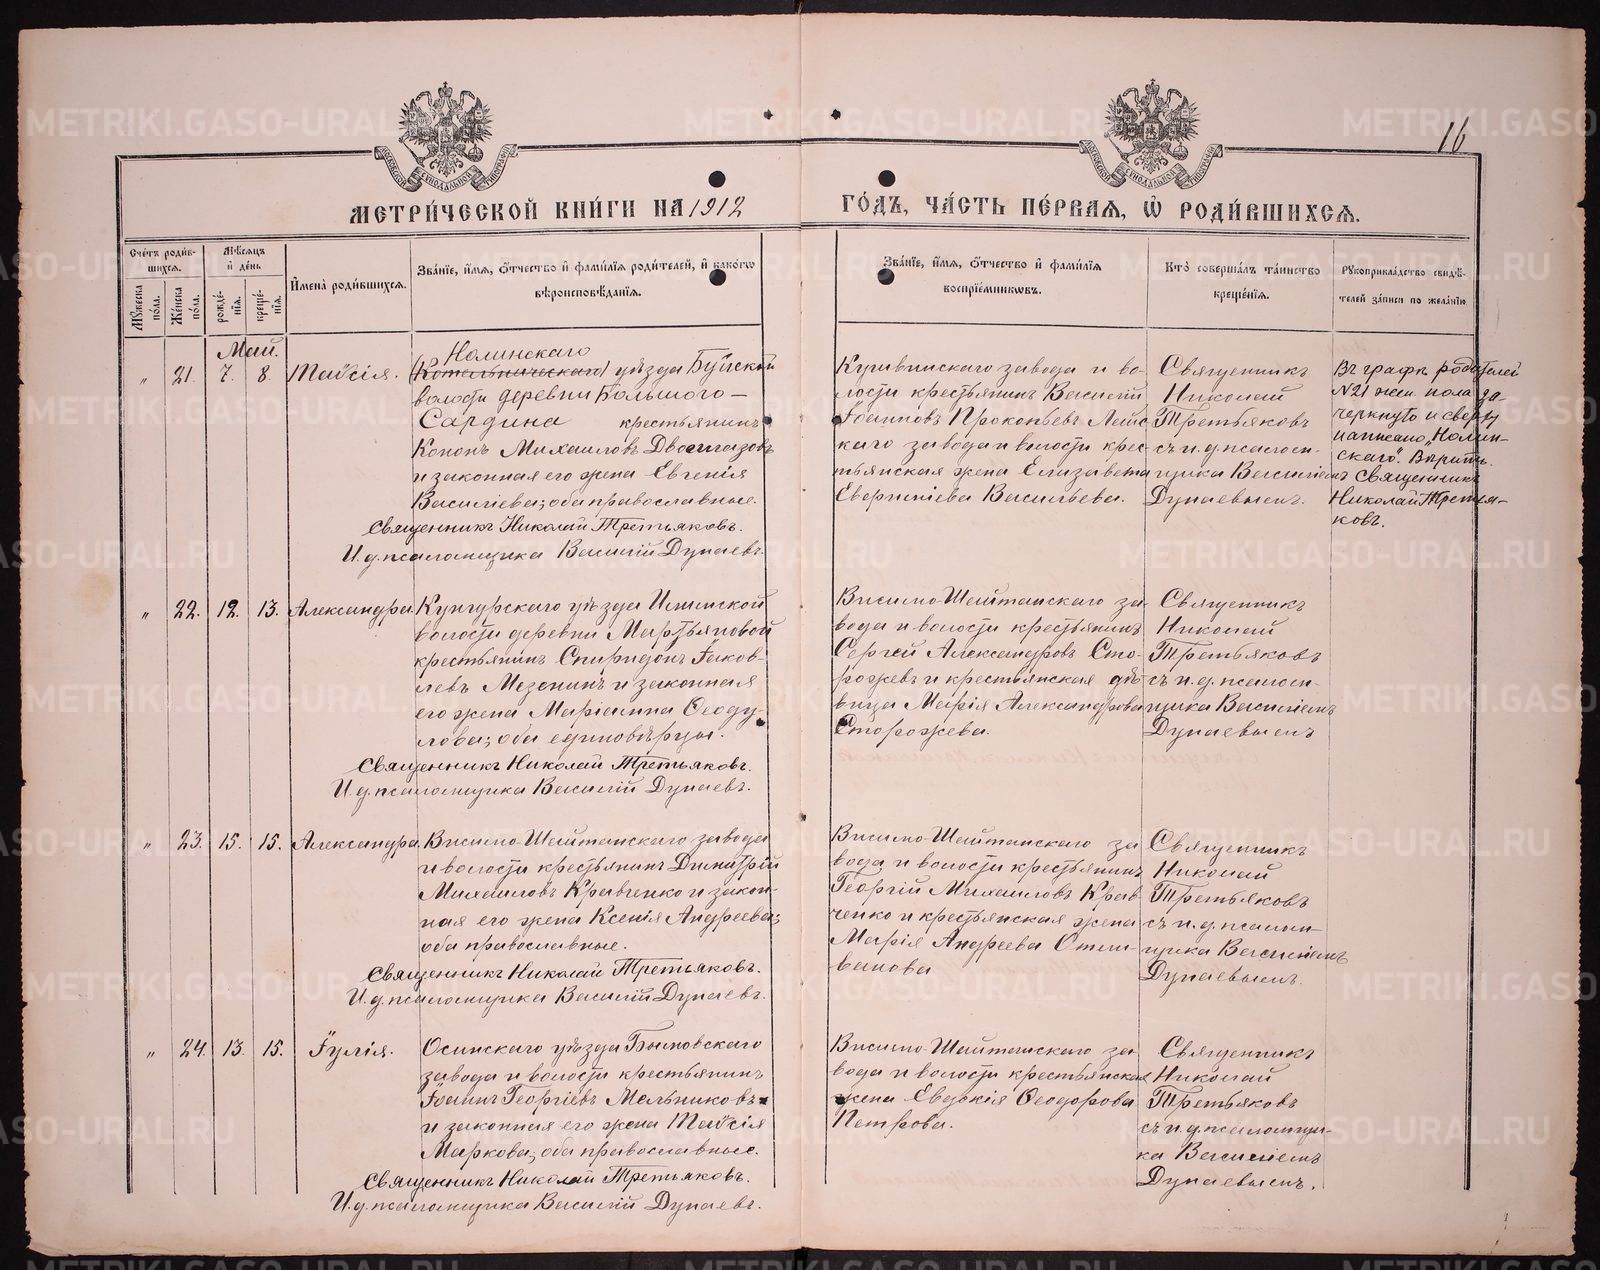 16
МЕТРИ́ЧЕСКОЙ КНИ́ГИ НА 1912
ГО́ДЪ, ЧА́СТЬ ПЕ́РВАЯ, Ѡ҆ РОДИ́ВШИХСЯ.
Сче́тъ роди́в-
шихся.
Мѣ́сяцъ
и҆ де́нь
И҆мена̀ роди́вшихся.
Зва́нїе, и҆́мя, ѻ҆́тчество и҆ фами́лїя роди́телей, и҆ како́гѡ
вѣроисповѣ́данїя.
Мꙋ́жеска
по́ла.
Же́нска
по́ла.
рожде́-
нїя.
креще́-
нїя.
Зва́нїе, и҆́мя, ѻ҆́тчество и҆ фами́лїя
воспрїе́мникѡвъ.
Кто̀ соверша́лъ та́инство
креще́нїя.
Рꙋкоприкла́дство свидѣ́-
телей за́писи по жела́нїю
Май.
„ 21. 7. 8. Таисія.
Нолинскаго
(Котельническаго) уѣзда Буйской
волости деревни Большого
Сардина крестьянинъ
Кононъ Михаиловъ Двоеглазовъ
и законная его жена Евгенія
Василіева; оба православные.
Священникъ Николай Третьяковъ.
И.д. псаломщика Василій Дунаевъ.
Кушвинскаго завода и во-
лости крестьянинъ Василій
Іоанновъ Прокопьевъ
каго завода и волости крес-
тьянская жена Елизавета
Васильева.
Священникъ
Николай
Третьяковъ
съ и.д. псалом-
щика Василіемъ
Дунаевымъ.
Въ графѣ родителей
№21 жен. пола за-
черкнуто и сверху
написано „Нолин-
скаго". Вѣрить.
Священникъ
Николай Третья-
ковъ.
„ 22. 12. 13. Александра
Кунгурскаго уѣзда Илимской
волости деревни Мартьяновой
крестьянинъ Спиридонъ Іаков-
левъ Мезенинъ и законная
его жена Маріанна Ѳеоду-
лова; оба единовѣрцы.
Священникъ Николай Третьяковъ.
И.д. псаломщика Василій Дунаевъ.
Висимо-Шайтанскаго за-
вода и волости крестьянинъ
Сергей Александровъ Сто-
рожевъ и крестьянская дѣ-
вица Марія Александрова
Сторожева.
Священникъ
Николай
Третьяковъ
съ и.д. псалом-
щика Василіемъ
Дунаевымъ
„ 23. 15. 15. Александра.
Висимо-Шайтанскаго завода
и волости крестьянинъ Димитрій
Михаиловъ Кравченко и закон-
ная его жена Ксенія Андреева;
оба православные.
Священникъ Николай Третьяковъ.
И.д. псаломщика Василій Дунаевъ.
Висимо-Шайтанскаго за-
вода и волости крестьянинъ
Георгій Михаиловъ Крав-
ченко и крестьянская жена
Марія Андреева
Священникъ
Николай
Третьяковъ
съ и.д. псалом-
щика Василіемъ
Дунаевымъ.
„ 24. 13. 15. Іулія.
Осинскаго уѣзда Бымовскаго
завода и волости крестьянинъ
Іоаннъ Георгіевъ Мельниковъ
и законная его жена Таисія
Маркова; оба православные.
Священникъ Николай Третьяковъ.
И.д. псаломщика Василій Дунаевъ.
Висимо-Шайтанскаго за-
вода и волости крестьянская
жена Евдокія Ѳеодорова
Петрова.
Священникъ
Николай
Третьяковъ
съ и.д. псаломщи-
ка Василіемъ
Дунаевымъ.
METRIKI.GASO-URAL.RU